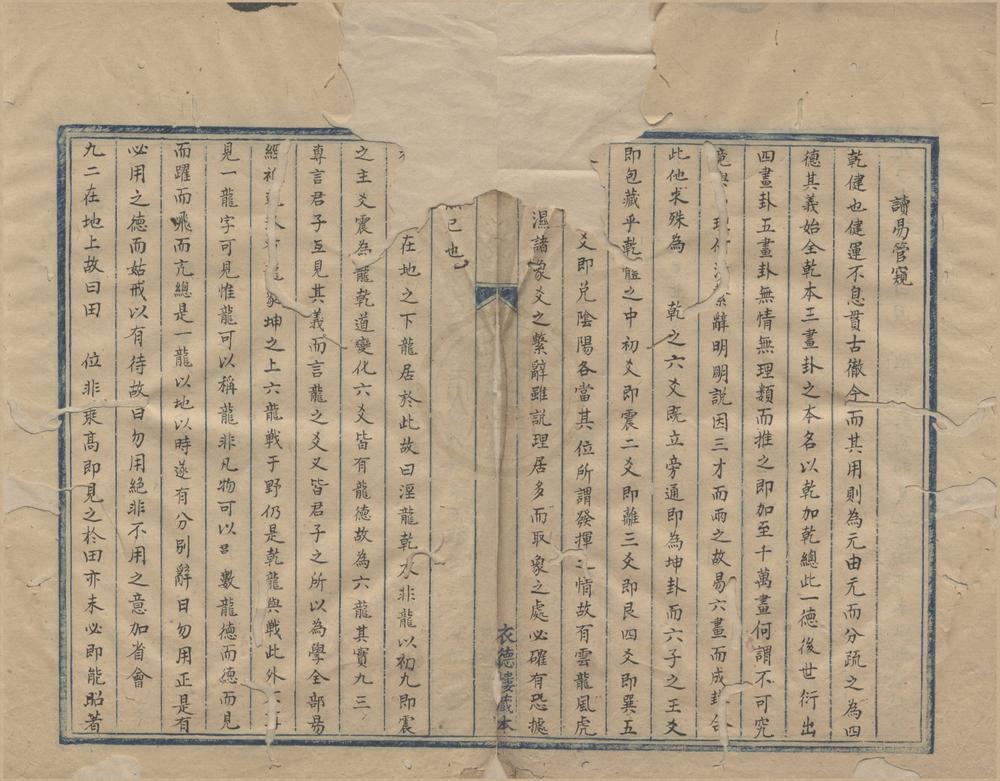 讀易管窺
乾健也健運不息貫古徹今而其用則為元由元而分疏之為四
德其義始全乾本三畫卦之本名以乾加乾總此一德後世衍出
四畫卦五畫卦無情無理類而推之即加至十萬畫何謂不可究
竟與 理何 繫辭明明說因三才而兩之故易六畫而成卦舍
此他求殊為 乾之六爻既立旁通即為坤卦而六子之主爻
即包藏乎乾體之中初爻即震二爻即離三爻即艮四爻即巽五
爻即兌陰陽各當其位所謂發揮之情故有雲龍風虎
濕諸象爻之繫辭雖說理居多而取象之處必確有恐據
衣德樓藏本
已也
在地之下龍居於此故曰淫龍乾水非龍以初九即震
之主爻震為龍乾道變化六爻皆有龍德故為六龍其實九三
專言君子互見其義而言龍之爻又皆君子之所以為學全部易
經 坤之上六龍戰于野仍是乾龍與戰此外
見一龍字可見惟龍可以稱龍非凡物可以 數龍德而德而見
而躍而飛而亢總是一龍以地以時遂有分別辭曰勿用正是有
必用之德而姑戒以有待故曰勿用絕非不用之意加省會
九二在地上故曰田 位非乘高即見之於田亦未必即能昭著